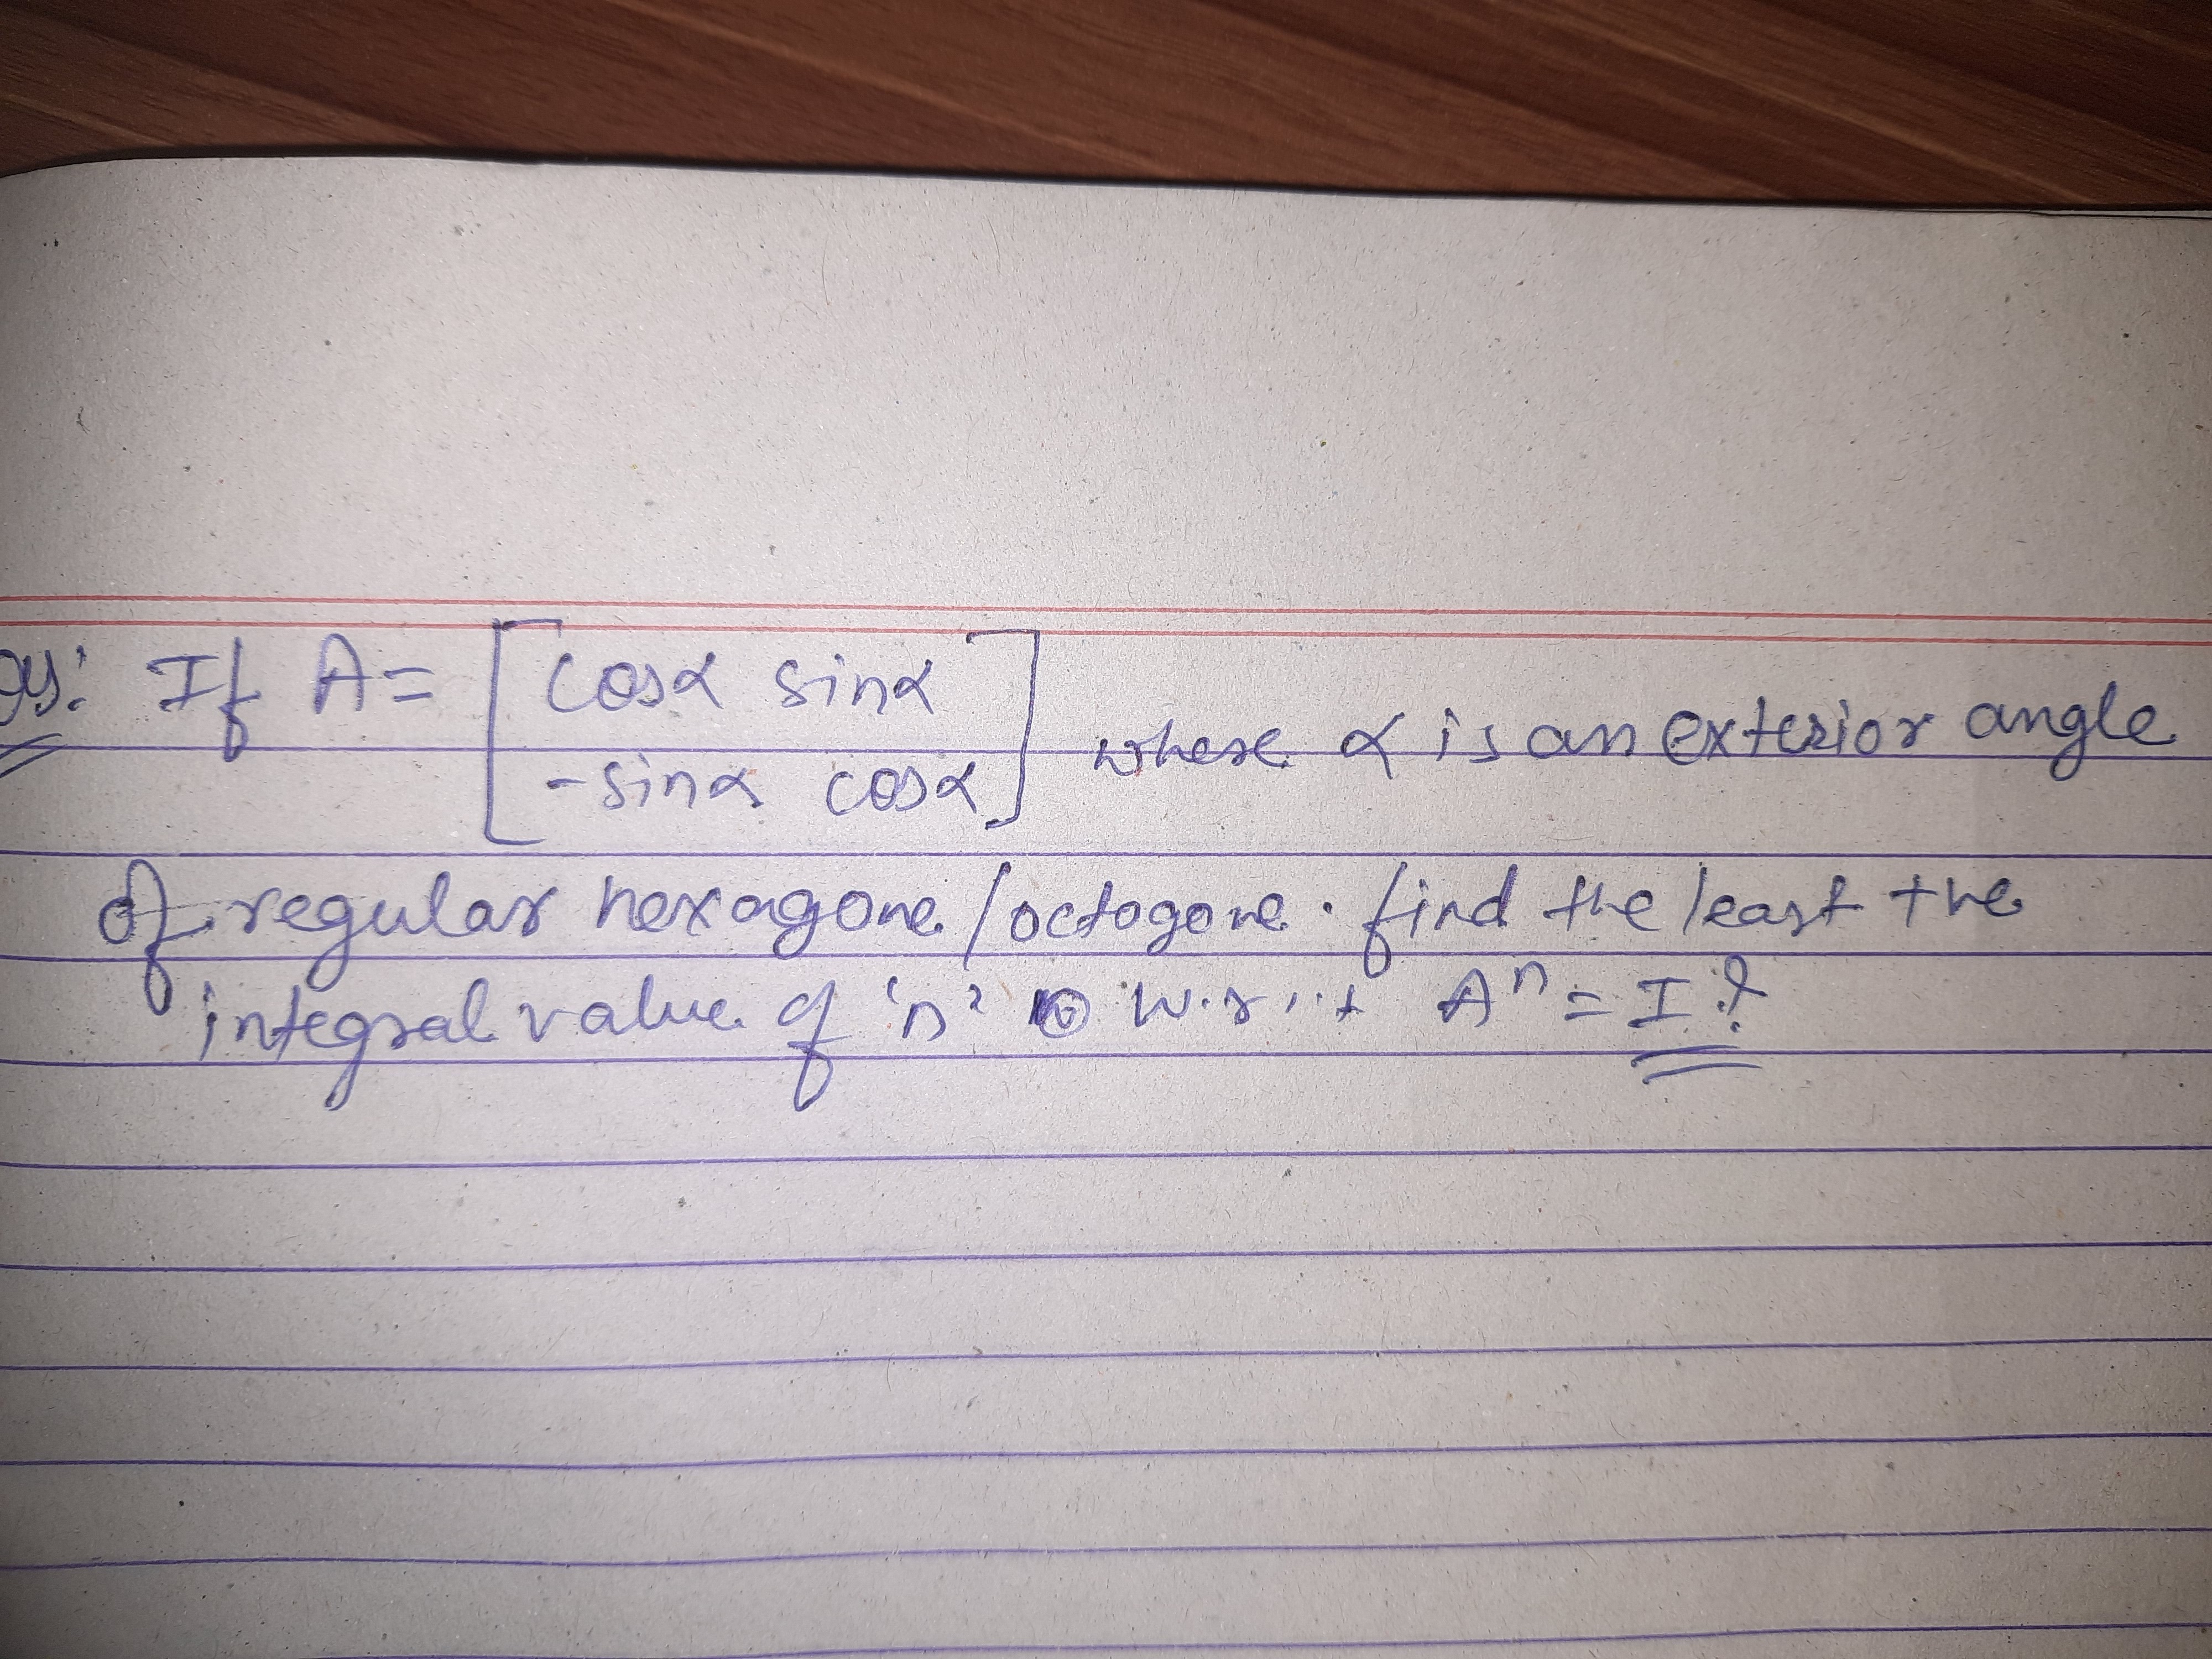 If A = [cosα sinα
-sinα cosα] where α is an exterior angle
of regular hexagone/octogone. find the least +ve
integral value of 'n' w.r.t Aⁿ = I?